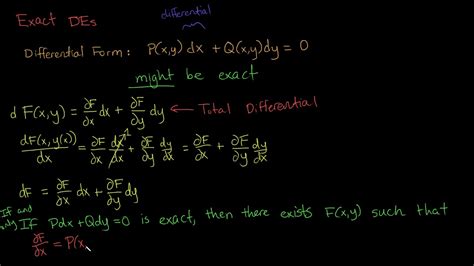 Exact DEs
differential
Differential Form: P(x,y) dx + Q(x,y)dy = 0
might be exact
d F(x,y) = ∂F/∂x dx + ∂F/∂y dy ← Total Differential
dF(x,y(x))/dx = ∂F/∂x dx/dx 1 + ∂F/∂y dy/dx = ∂F/∂x + ∂F/∂y dy/dx
dF = ∂F/∂x dx + ∂F/∂y dy
If and
only If Pdx + Qdy = 0 is exact, then there exists F(x,y) such that
∂F/∂x = P(x,